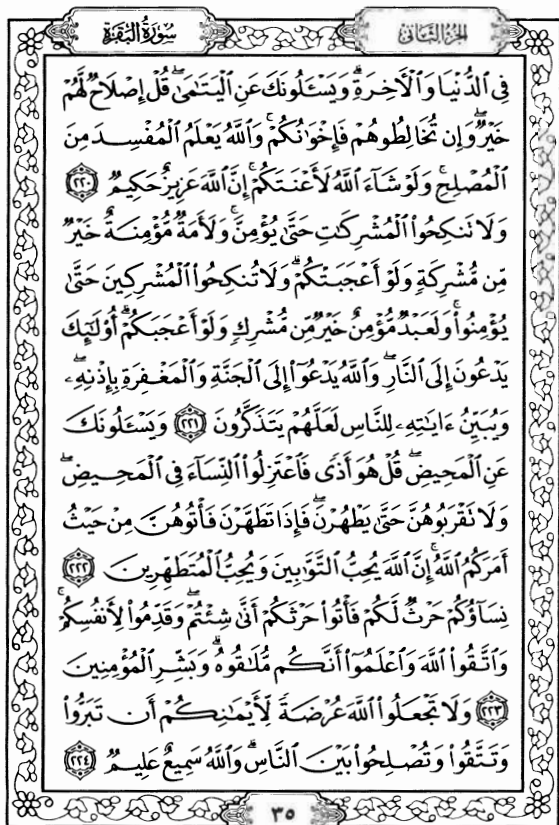 الجزء الثاني
سورة البقرة
فِي الدُّنْيَا وَالْآخِرَةِ ۗ وَيَسْـَٔلُونَكَ عَنِ الْيَتَامَىٰ ۖ قُلْ إِصْلَاحٌ لَّهُمْ
خَيْرٌ ۖ وَإِن تُخَالِطُوهُمْ فَإِخْوَانُكُمْ ۚ وَاللَّهُ يَعْلَمُ الْمُفْسِدَ مِنَ
الْمُصْلِحِ ۚ وَلَوْ شَاءَ اللَّهُ لَأَعْنَتَكُمْ ۚ إِنَّ اللَّهَ عَزِيزٌ حَكِيمٌ ٢٢٠
وَلَا تَنكِحُوا الْمُشْرِكَاتِ حَتَّىٰ يُؤْمِنَّ ۚ وَلَأَمَةٌ مُّؤْمِنَةٌ خَيْرٌ
مِّن مُّشْرِكَةٍ وَلَوْ أَعْجَبَتْكُمْ ۗ وَلَا تُنكِحُوا الْمُشْرِكِينَ حَتَّىٰ
يُؤْمِنُوا ۚ وَلَعَبْدٌ مُّؤْمِنٌ خَيْرٌ مِّن مُّشْرِكٍ وَلَوْ أَعْجَبَكُمْ ۗ أُولَٰئِكَ
يَدْعُونَ إِلَى النَّارِ ۖ وَاللَّهُ يَدْعُوا إِلَى الْجَنَّةِ وَالْمَغْفِرَةِ بِإِذْنِهِ ۖ
وَيُبَيِّنُ ءَايَاتِهِ لِلنَّاسِ لَعَلَّهُمْ يَتَذَكَّرُونَ ٢٢١ وَيَسْـَٔلُونَكَ
عَنِ الْمَحِيضِ ۖ قُلْ هُوَ أَذًى فَاعْتَزِلُوا النِّسَاءَ فِي الْمَحِيضِ ۖ
وَلَا تَقْرَبُوهُنَّ حَتَّىٰ يَطْهُرْنَ ۖ فَإِذَا تَطَهَّرْنَ فَأْتُوهُنَّ مِنْ حَيْثُ
أَمَرَكُمُ اللَّهُ ۚ إِنَّ اللَّهَ يُحِبُّ التَّوَّابِينَ وَيُحِبُّ الْمُتَطَهِّرِينَ ٢٢٢
نِسَاؤُكُمْ حَرْثٌ لَّكُمْ فَأْتُوا حَرْثَكُمْ أَنَّىٰ شِئْتُمْ ۖ وَقَدِّمُوا لِأَنفُسِكُمْ ۚ
وَاتَّقُوا اللَّهَ وَاعْلَمُوا أَنَّكُم مُّلَاقُوهُ ۗ وَبَشِّرِ الْمُؤْمِنِينَ
٢٢٣ وَلَا تَجْعَلُوا اللَّهَ عُرْضَةً لِّأَيْمَانِكُمْ أَن تَبَرُّوا
وَتَتَّقُوا وَتُصْلِحُوا بَيْنَ النَّاسِ ۗ وَاللَّهُ سَمِيعٌ عَلِيمٌ ٢٢٤
٣٥